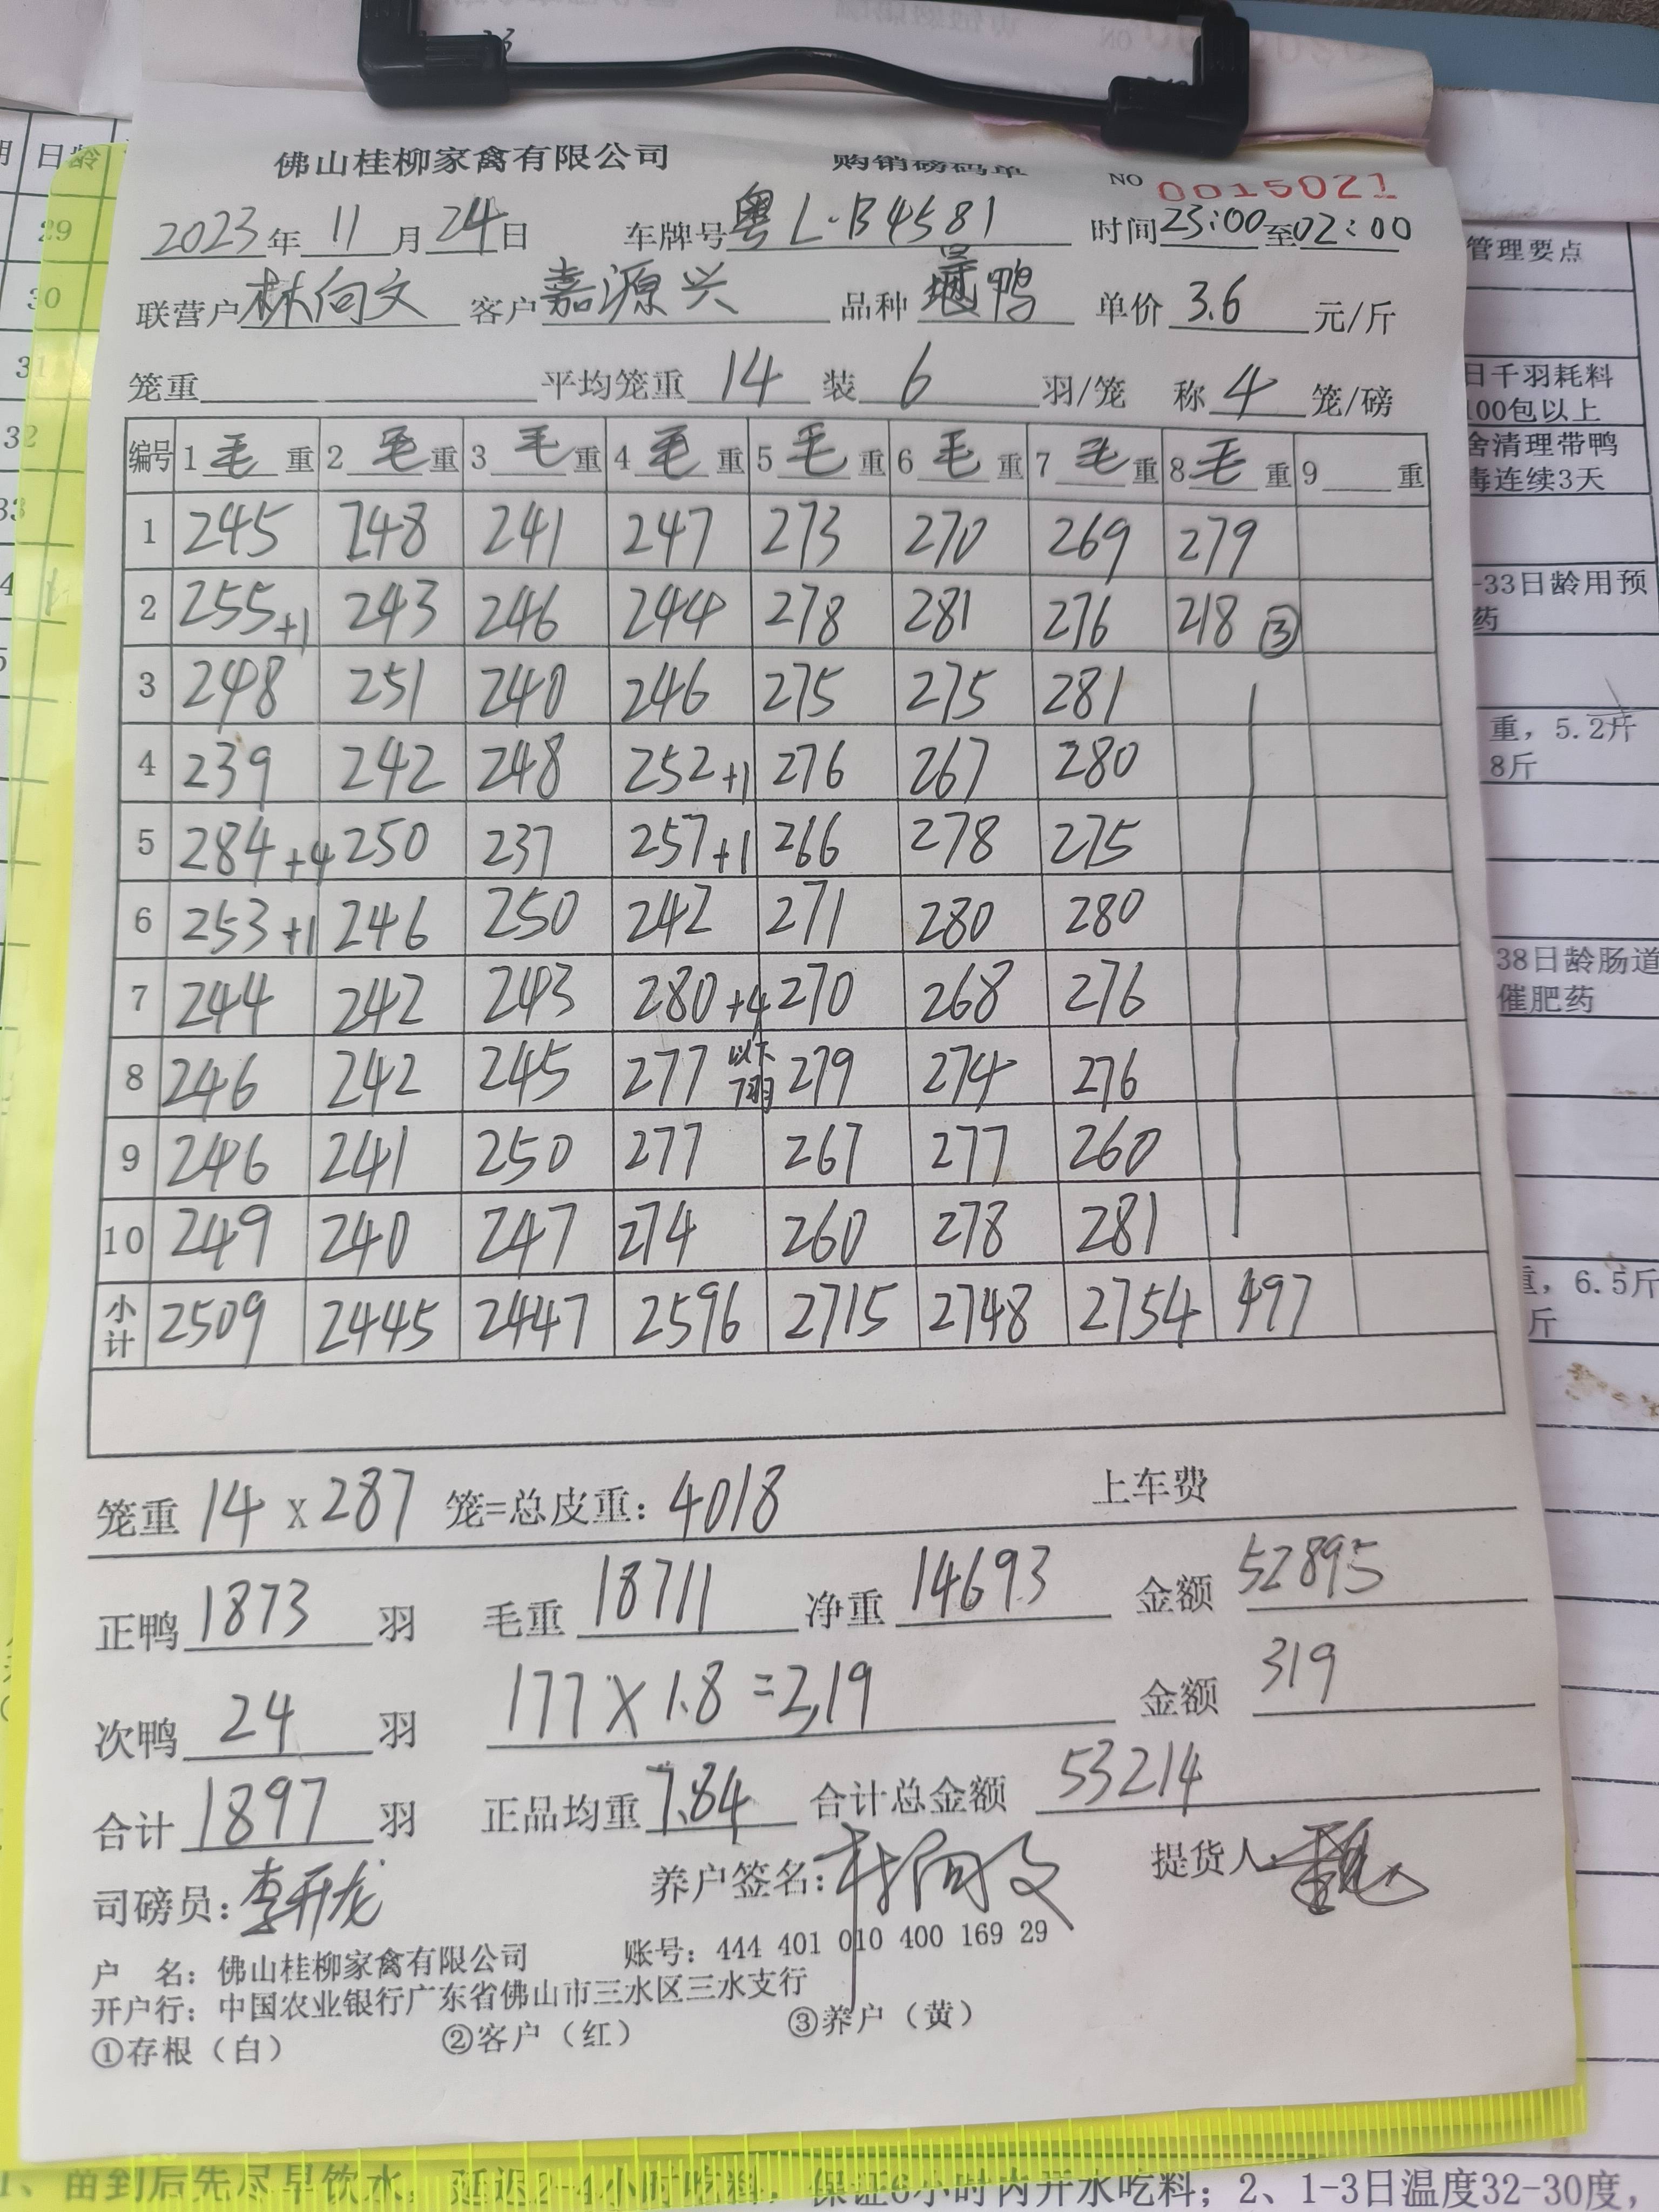 佛山桂柳家禽有限公司 购销磅码单 NO 0015021
2023年 11月 24日 车牌号 粤L·B4581 时间 23:00至02:00
联营户 林向文 客户 嘉源兴 品种 鸭 单价 3.6 元/斤
笼重 平均笼重 14 装 6 羽/笼 称 4 笼/磅
编号 1毛重 2毛重 3毛重 4毛重 5毛重 6毛重 7毛重 8毛重 9 重
1 245 248 241 247 273 270 269 279
2 255+1 243 246 244 278 281 276 218 ③
3 248 251 240 246 275 275 281
4 239 242 248 252+1 276 267 280
5 284+4 250 237 257+1 266 278 275
6 253+1 246 250 242 271 280 280
7 244 242 243 280+4 270 268 276
8 246 242 245 277 以下7羽 279 274 276
9 246 241 250 277 267 277 260
10 249 240 247 274 260 278 281
小计 2509 2445 2447 2596 2715 2748 2754 497
笼重 14 x 287 笼=总皮重: 4018 上车费
正鸭 1873 羽 毛重 18711 净重 14693 金额 52895
次鸭 24 羽 177 X 1.8 = 319 金额 319
合计 1897 羽 正品均重 7.84 合计总金额 53214
司磅员: 李开龙 养户签名: 林向文 提货人:
户 名: 佛山桂柳家禽有限公司 账号: 444 401 010 400 169 29
开户行: 中国农业银行广东省佛山市三水区三水支行
①存根(白) ②客户(红) ③养户(黄)
日龄
29
30
31
32
管理要点
日千羽耗料
100包以上
舍清理带鸭
毒连续3天
-33日龄用预
药
重, 5.2斤
8斤
38日龄肠道
催肥药
重, 6.5斤
斤
1、苗到后先尽早饮水, 延迟2-4小时吃料, 保证6小时内开水吃料; 2、1-3日温度32-30度,